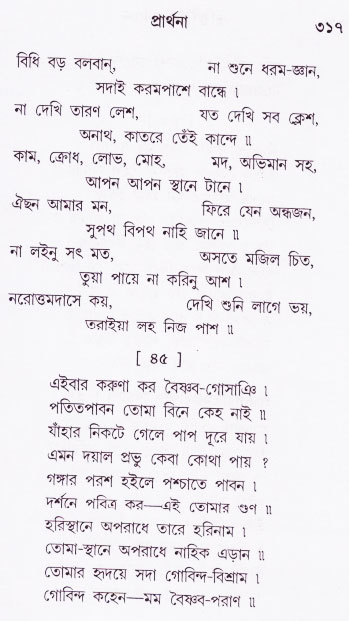 প্রার্থনা ৩১৭
বিধি বড় বলবান্, না শুনে ধরম-জ্ঞান,
সদাই করমপাশে বান্ধে ।
না দেখি তারণ লেশ, যত দেখি সব ক্লেশ,
অনাথ, কাতরে তেঁই কান্দে ॥
কাম, ক্রোধ, লোভ, মোহ, মদ, অভিমান সহ,
আপন আপন স্থানে টানে ।
ঐছন আমার মন, ফিরে যেন অন্ধজন,
সুপথ বিপথ নাহি জানে ॥
না লইনু সৎ মত, অসতে মজিল চিত,
তুয়া পায়ে না করিনু আশ ।
নরোত্তমদাসে কয়, দেখি শুনি লাগে ভয়,
তরাইয়া লহ নিজ পাশ ॥
[ ৪৫ ]
এইবার করুণা কর বৈষ্ণব-গোসাঞি ।
পতিতপাবন তোমা বিনে কেহ নাই ॥
যাঁহার নিকটে গেলে পাপ দূরে যায় ।
এমন দয়াল প্রভু কেবা কোথা পায় ?
গঙ্গার পরশ হইলে পশ্চাতে পাবন ।
দর্শনে পবিত্র কর—এই তোমার গুণ ॥
হরিস্থানে অপরাধে তারে হরিনাম ।
তোমা-স্থানে অপরাধে নাহিক এড়ান ॥
তোমার হৃদয়ে সদা গোবিন্দ-বিশ্রাম ।
গোবিন্দ কহেন—মম বৈষ্ণব-পরাণ ॥